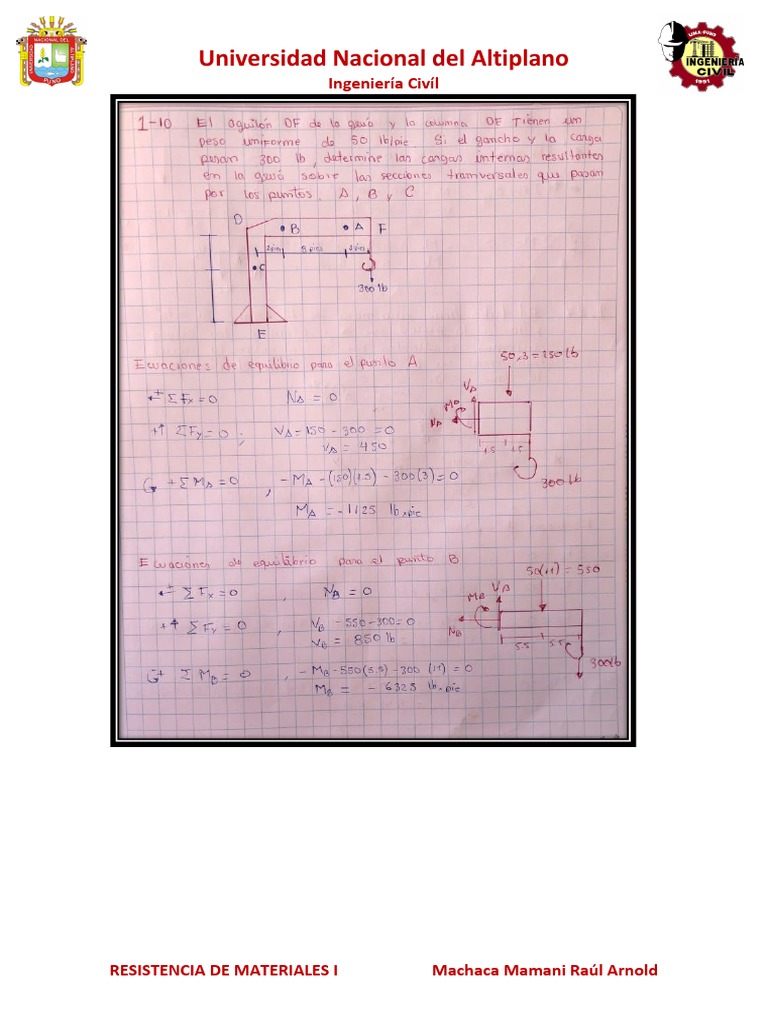 Universidad Nacional del Altiplano
Ingeniería Civíl
LIMA-PUNO
INGENIERIA
CIVIL
1991
1-10 El aguilón DF de la grúa y la columna DE Tienen un
peso uniforme de 50 lb/pie Si el gancho y la carga
pesan 300 lb, determine las cargas internas resultantes
en la grúa sobre las secciones tranversales que pasan
por los puntos, A, B y C
D
B
A
F
2 pies
8 pies
3 pies
C
300 lb
E
Ecuaciones de equilibrio para el punto A
50.3 = 150 lb
←+ ΣFx = 0 NA = 0
+↑ ΣFy = 0 ; VA - 150 - 300 = 0
VA = 450
+ ΣMA = 0 , -MA - (150)(1.5) - 300(3) = 0
MA = -1125 lb.pie
VA
MA
NA
1.5 1.5
300 lb
Ecuaciones de equilibrio para el punto B
50(11) = 550
←+ ΣFx = 0 , NB = 0
+↑ ΣFy = 0 , VB - 550 - 300 = 0
VB = 850 lb
+ ΣMB = 0 , -MB - 550(5.5) - 300(11) = 0
MB = -6325 lb.pie
VB
MB
NB
5.5 5.5
300 lb
RESISTENCIA DE MATERIALES I Machaca Mamani Raúl Arnold